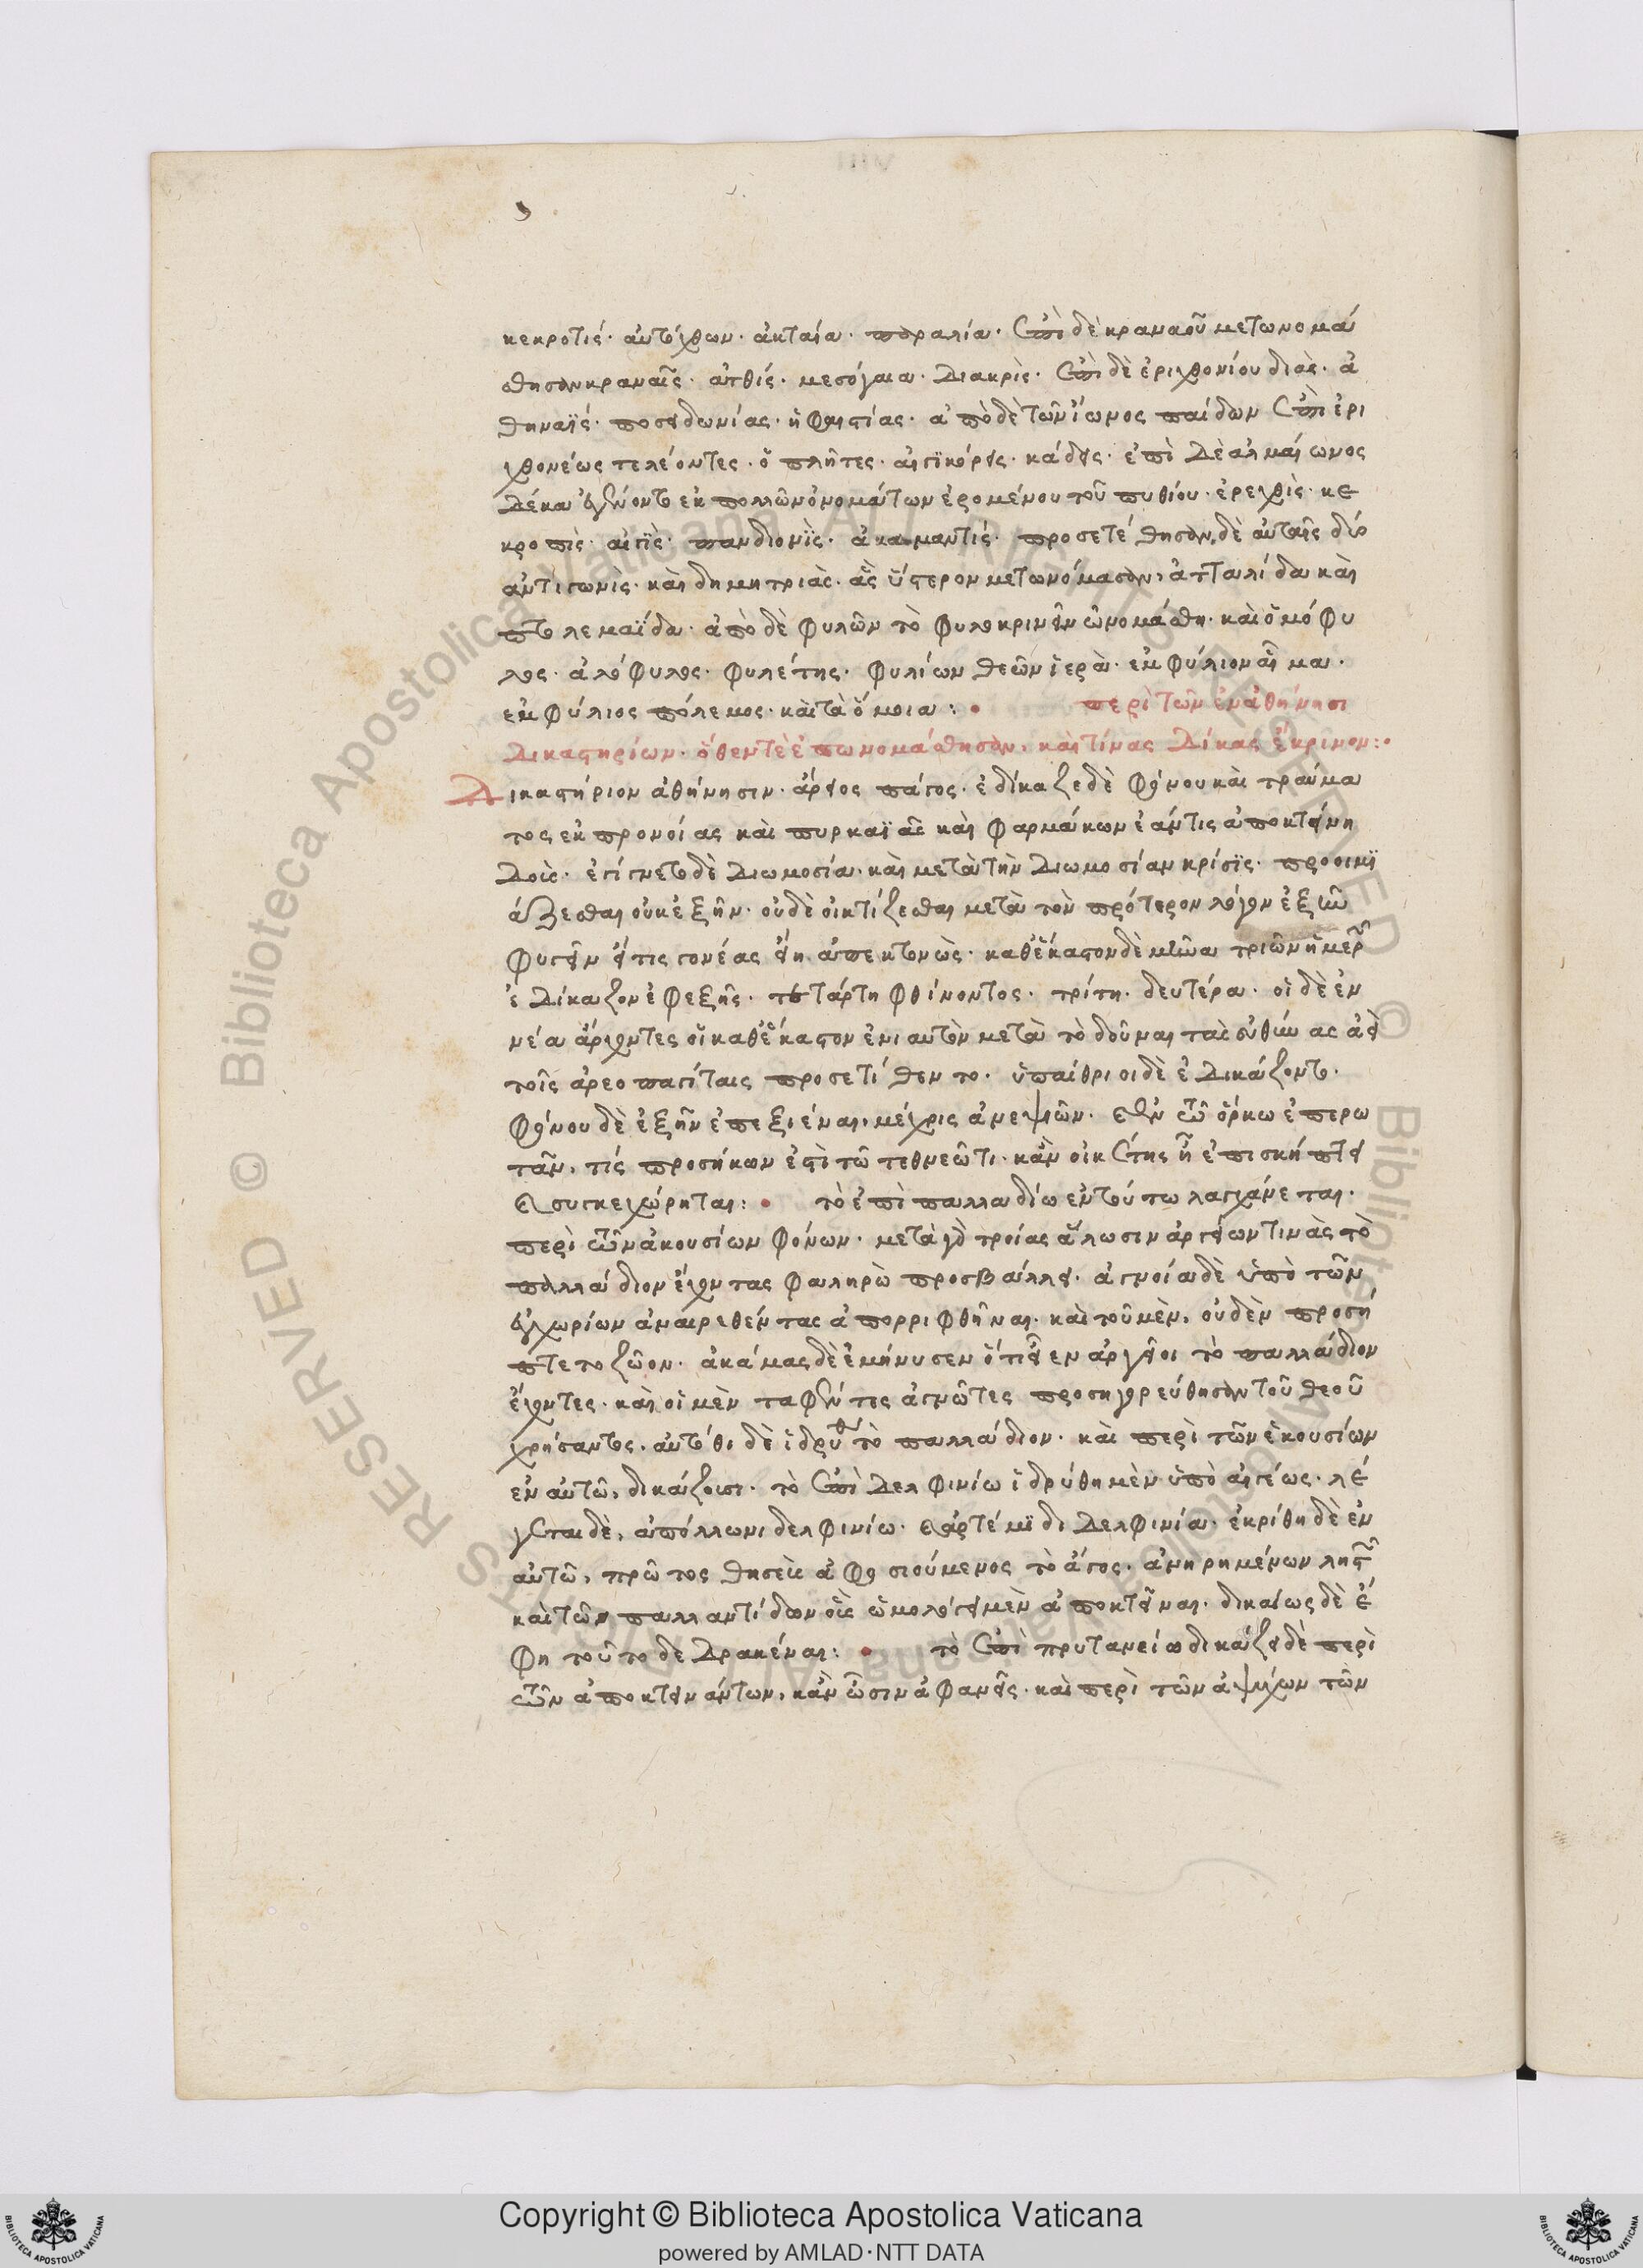 κεκροτίς· αὐτόχθων· ἀκταία· παραλία· ἐπὶ δὲ κραναοῦ μετωνομά
σθησαν κραναῒς· ἀτθίς· μεσόγαια· Διακρὶς· ἐπὶ δὲ ἐριχθονίου διὰς· ἀ
θηναΐς· ποσειδωνίας· ἡφαιστίας· ἀπὸ δὲ τῶν ἴωνος παίδων ἐπὶ ἐρι
χθονέως τελέοντες· ὅπλῆτες· αἰγϊκόρεις· κάδεις· ἐπὶ Δὲ ἀλμαίωνος
Δέκα ἐγένοντο ἐκ πολλῶν ὀνομάτων ἑρομένου τοῦ πυθίου· ἐρεχθὶς· κε
κροπὶς· αἰγῒς· πανδιονῒς· ἀκαμαντίς· προσετέθησαν, δὲ αὐταῖς δύο
αντιγωνὶς· καὶ δημητριὰς· ἃς ὕστερον μετωνόμασαν, ἀτταλίδα καὶ
πτολεμαΐδα· ἀπὸ δὲ φυλῶν τὸ φυλοκρινεῖν ὠνομάσθη· καὶ ὁμόφυ
λος· ἀλόφυλος· φυλέτης· φυλίων θεῶν ἱερὰ· ἐμφύλιον αἷμα·
ἐμφύλιος πόλεμος· καὶ τὰ ὅμοια:
περὶ τῶν ἐν ἀθήνησι
Δικαστηρίων· ὅθεν τὲ ἐπωνομάσθησαν· καὶ τίνας Δίκας ἔκρινον:·
Δικαστήριον ἀθήνησιν· ἄρειος πάγος· ἐδίκαζε δὲ φόνου καὶ τραύμα
τος ἐκ προνοίας καὶ πυρκαϊᾶς καὶ φαρμάκων ἐάν τις ἀποκτείνη
Δοὺς· ἐγίγνετο δὲ Διωμοσία· καὶ μετὰ τὴν Διωμοσίαν κρίσϊς· προοιμϊ
άζεσθαι οὐκ ἐξῆν· οὐδὲ οἰκτίζεσθαι μετὰ τὸν πρότερον λόγον ἐξῆν
φυγεῖν εἴ τις γονέας εἴη ἀπεκτονὼς· καθ' ἕκαστον δὲ μῆνα τριῶν ἡμερῶν
ἐΔίκαζον ἐφεξῆς· τετάρτη φθίνοντος· τρίτη· δευτέρα· οἱ δὲ ἐν
νέα ἄρχοντες οἵ καθ' ἕκαστον ἐνιαυτὸν μετὰ τὸ δοῦναι τὰς εὐθύνας ἀεὶ
τοῖς ἀρεοπαγίταις προσετίθεντο· ὑπαίθριοι δὲ ἐΔικάζοντο·
φόνου δὲ ἐξῆν ἐπεξιέναι, μέχρις ἀνεψιῶν· ἐν τῷ ὅρκω ἐπερω
τᾶν, τίς προσήκων ἐστὶ τῶ τεθνεῶτι· κἂν οἰκέτης ἦ ἐπισκήπτει
συγκεχώρηται: τὸ ἐπὶ παλλαδίω ἐν τούτω λαγχάνεται·
περὶ τῶν ἀκουσίων φόνων· μετὰ γὰρ τροίας ἅλωσιν ἀργείων τινὰς τὸ
παλλάδιον ἔχοντας φαληρὼ προσβάλλει· ἀγνοία δὲ ὑπὸ τῶν
ἐγχωρίων ἀναιρεθέντας ἀπορριφθῆναι· καὶ τοῦ μὲν, οὐδὲν προσή
πτετο ζῶον· ἀκάμας δὲ ἐμήνυσεν ὅτι εἶεν ἀργεῖοι τὸ παλλάδιον
ἔχοντες· καὶ οἱ μὲν ταφέντες ἀγνῶτες προσηγορεύθησαν τοῦ θεοῦ
χρήσαντος· αὐτόθι δὲ ἱδρύθη τὸ παλλάδιον· καὶ περὶ τῶν ἑκουσίων
ἐν αὐτῶ, δικάζουσι· τὸ ἐπὶ Δελφινίω ἱδρύθη μὲν ὑπὸ αἰγέως· λέ
γεται δὲ, ἀπόλλωνι δελφινίω· καὶ ἀρτέμϊδι Δελφινία· ἐκρίθη δὲ ἐν
αὐτῶ, πρῶτος θησεὺς ἀφοσιούμενος τὸ ἄγος· ἀνηρημένων ληστῶν
καὶ τῶν παλλαντίδων οὓς ὡμολόγει μὲν ἀποκτεῖναι· δικαίως δὲ ἔ
φη τοῦτο δεΔρακέναι: τὸ ἐπὶ πρυτανείω δικάζει δὲ περὶ
τῶν ἀποκτεινάντων, κἂν ὦσιν ἀφανεῖς· καὶ περὶ τῶν ἀψύχων τῶν
© Biblioteca Apostolica Vaticana ALL RIGHTS RESERVED
Copyright © Biblioteca Apostolica Vaticana
powered by AMLAD·NTT DATA
BIBLIOTECA APOSTOLICA VATICANA
BIBLIOTECA APOSTOLICA VATICANA